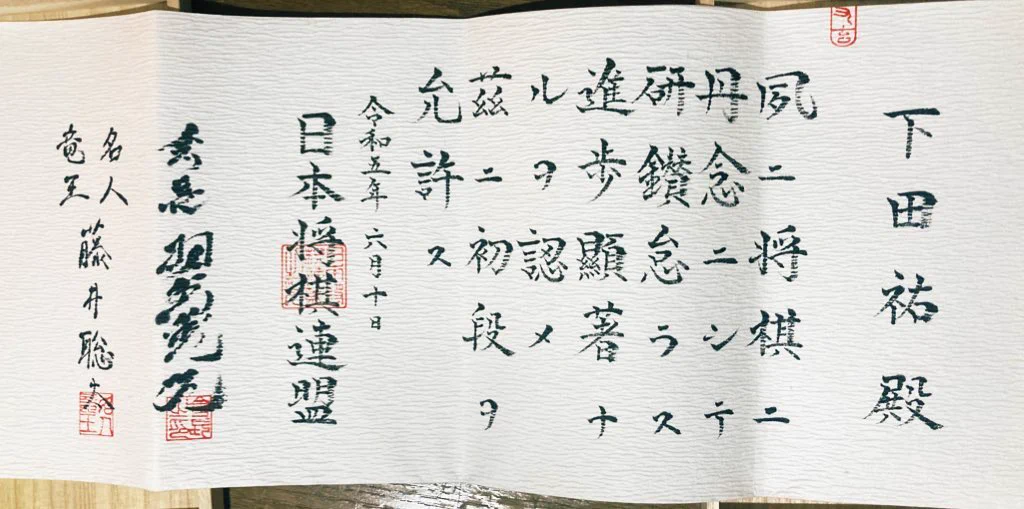 下田祐殿
夙ニ将棋ニ
丹念ニシテ
研鑽怠ラス
進歩顯著ナ
ルヲ認メ
茲ニ初段ヲ
允許ス
令和五年六月十日
日本将棋連盟
会長 羽生善治
名人
竜王
藤井聡太